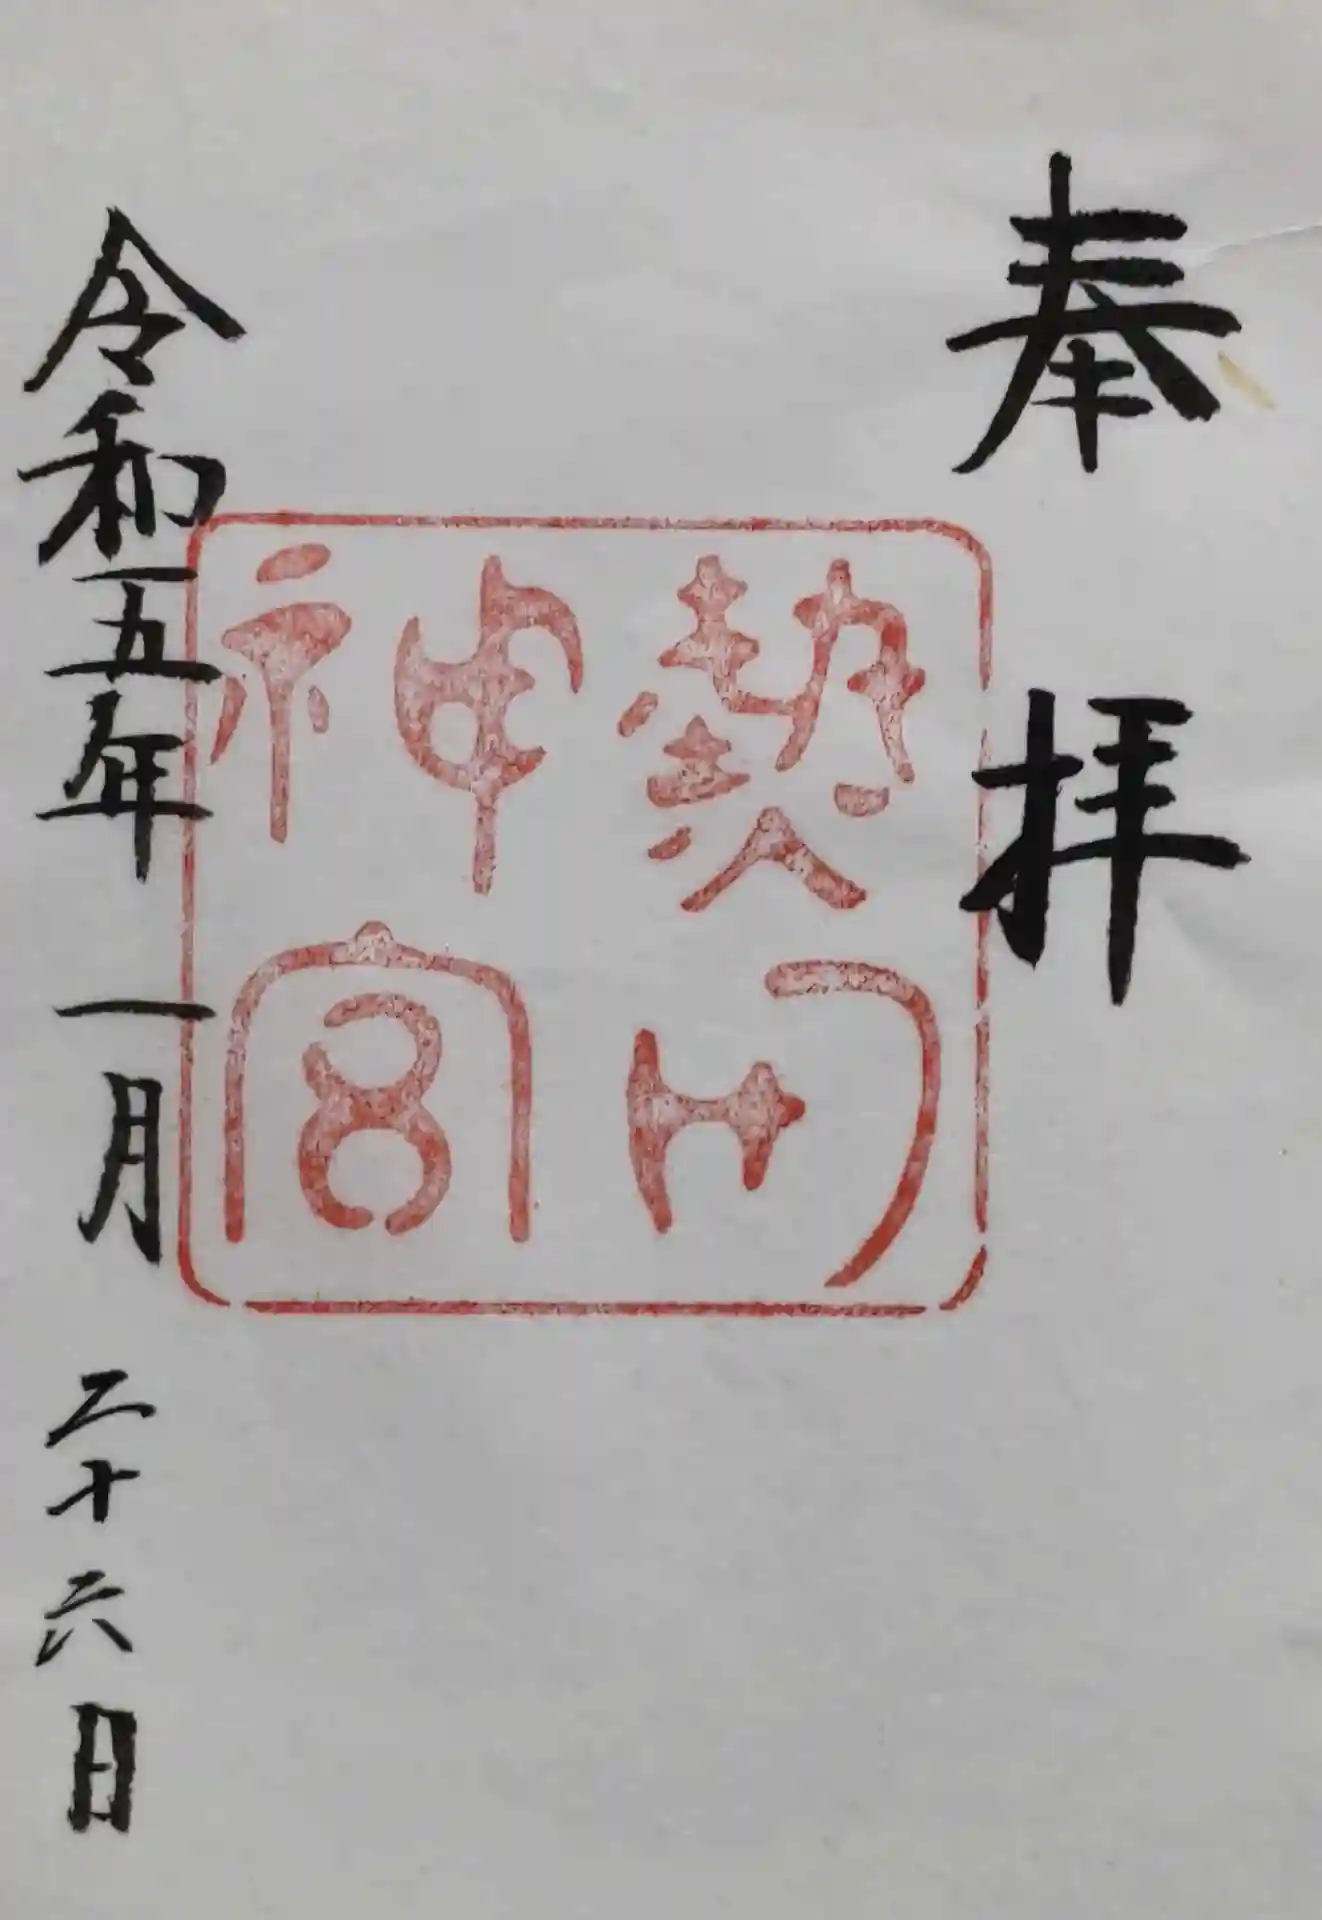 奉拝
熱田
神宮
令和五年一月二十六日